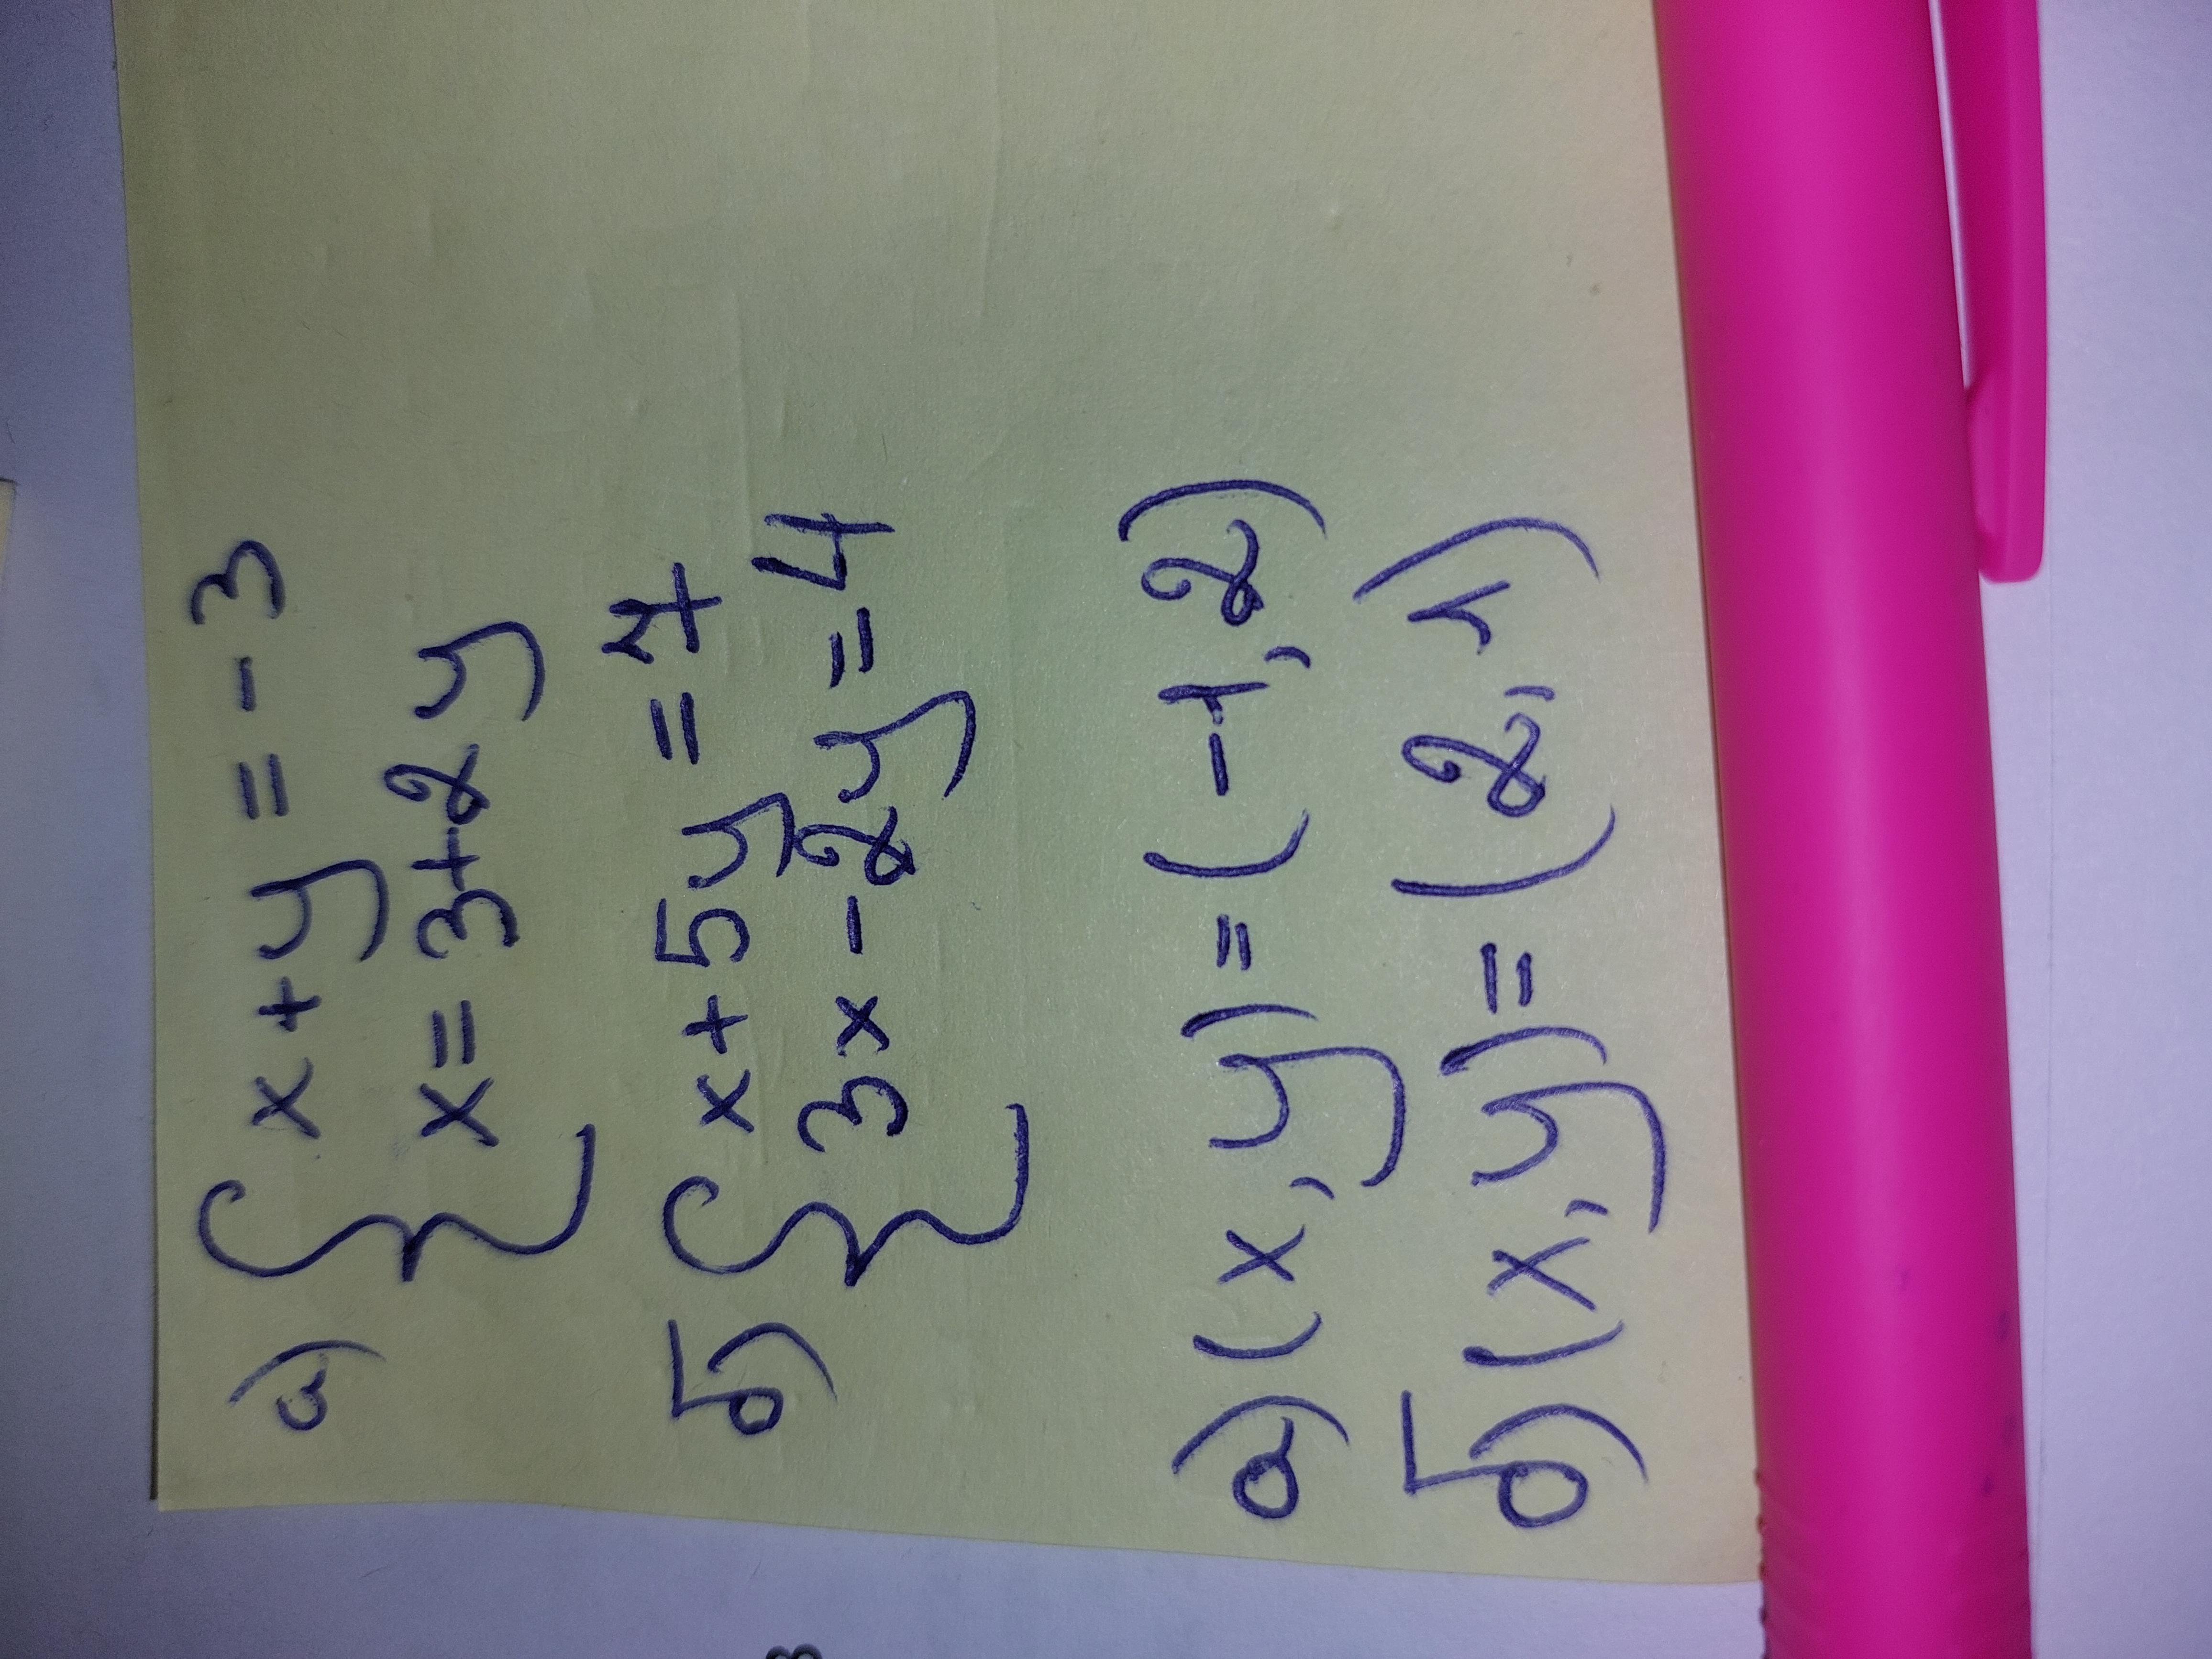 а) { x + y = - 3
x = 3 + 2y
б) { x + 5y = 7
3x - 2y = 4
а) (x, y) = (-1, 2)
б) (x, y) = (2, 1)